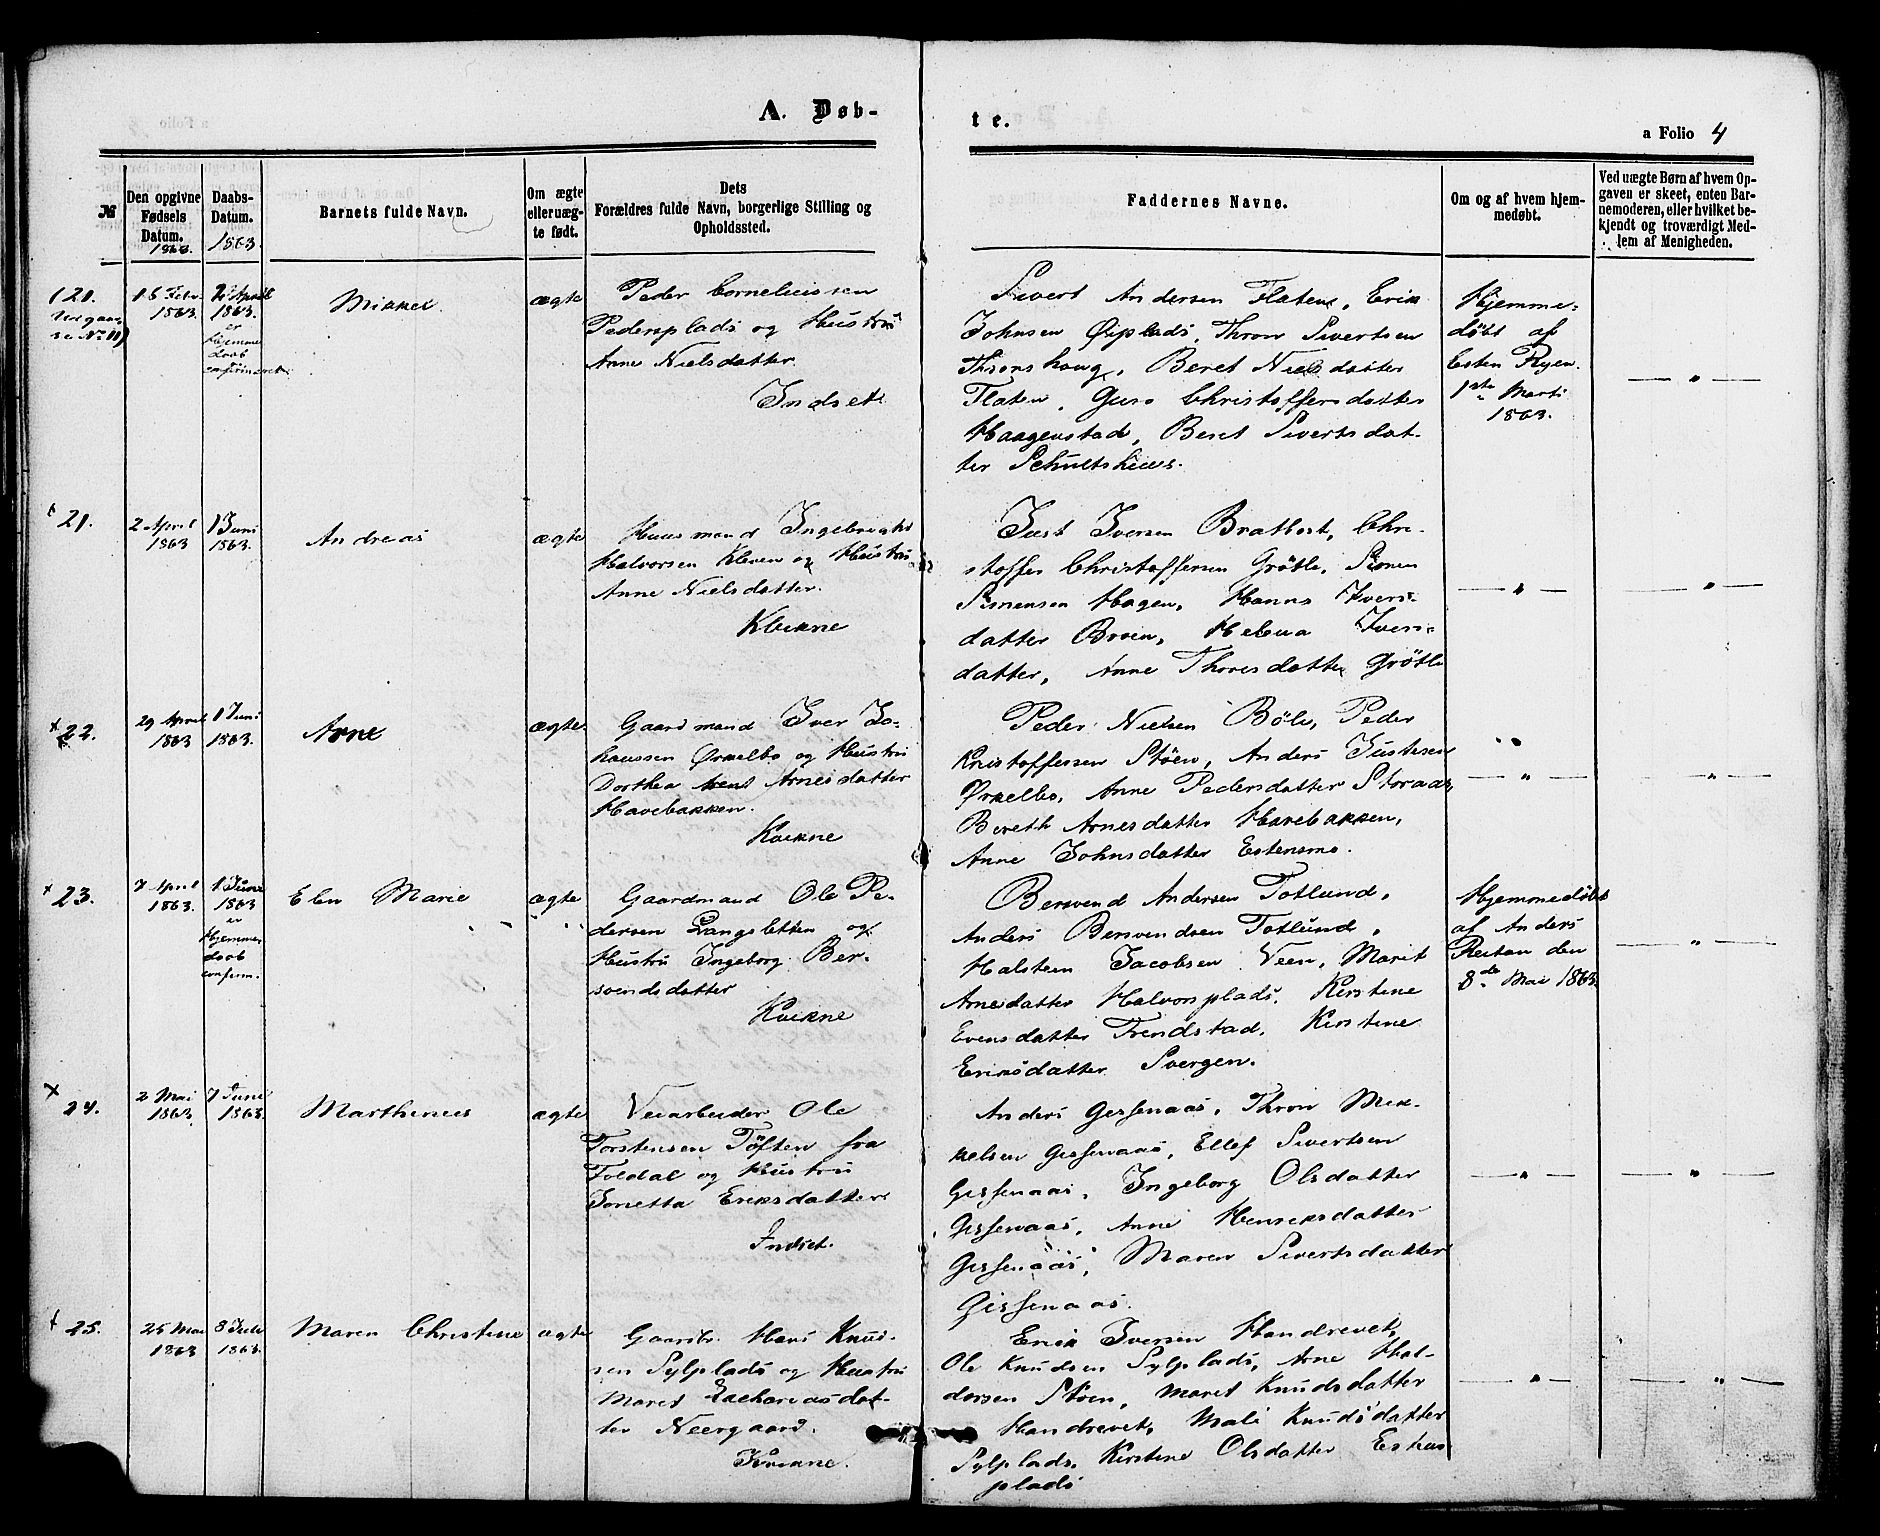 A. Døb-
te.
a Folio 4
№
Den opgivne Fødsels Datum. 1863.
Daabs-Datum. 1863.
Barnets fulde Navn.
Om ægte eller uæg-te født.
Dets
Forældres fulde Navn, borgerlige Stilling og
Opholdssted.
Faddernes Navne.
Om og af hvem hjem-
medøbt.
Ved uægte Børn af hvem Op-
gaven er skeet, enten Bar-
nemoderen, eller hvilket be-
kjendt og troværdigt Med-
lem af Menigheden.
(20.
16 Febr. 1863.
1863. er Hjemme daab confirmeret.
Mikkel
ægte
Peder Corneliussen
Pedersplads og Hustru
Anne Nielsdatter.
Indset
Sivert Andersen Flaten, Erik
Johnsen Øiplads, Thron Sivertsen
Thronshaug, Beret Nielsdatter
Flaten, Guro Christoffersdatter
Haagenstad, Beret Sivertsdat-
ter Schultshuus.
Hjemme-
døbt af
Esten Ryen
1ste Marts
1863.
— " —
21.
2 April 1863
1 Juni 1863.
Andreas
ægte
Huusmand Ingebrigt
Halvorsen Kleven og Hustru
Anne Nielsdatter.
Kvikne
Just Iversen Brattost, Chri-
stoffer Christoffersen Grøtli, Simen
Simensen Hagen, Hanna Ivers-
datter Broen, Helena Ivers-
datter, Anne Thoresdatter Grøtli
— " —
— " —
22.
29 April 1863
1 Juni 1863.
Arne
ægte
Gaardmand Iver Jo-
hansen Ørkelbo og Hustru
Dorthea Arnesdatter
Havebakken.
Kvikne
Peder Nielsen Bøli, Peder
Kristoffersen Støen, Anders Justesen
Ørkelbo, Anne Pedersdatter Storaas,
Bereth Arnesdatter Havebakken,
Anne Johnsdatter Estensmo.
— " —
— " —
23.
7 April 1863.
1 Juni 1863 er Hjemme daab confirm.
Elen Marie
ægte
Gaardmand Ole Pe-
dersen Langsletten og
Hustru Ingeborg Ber-
svendsdatter
Kvikne
Bersvend Andersen Totlund,
Anders Bersvendsen Totlund,
Halstein Jacobsen Veen, Marit
Arnesdatter Halvorsplads, Kerstine
Evensdatter Frendstad, Kirstine
Eriksdatter Svergen.
Hjemmedøbt
af Anders
Reitan den
8de Mai 1863.
— " —
24.
2 Mai 1863.
7 Juni 1863.
Marthinus
ægte
Veiarbeider Ole
Torstensen Tøften fra
Foldal og Hustru
Jonetta Eriksdatter
Indset.
Anders Gissenaas, Thron Mik-
kelsen Gissenaas, Ellef Sivertsen
Gissenaas, Ingeborg Olsdatter
Gissenaas, Anne Henriksdatter
Gissenaas, Maren Sivertsdatter
Gissenaas.
— " —
— " —
25.
25 Mai 1863
1863.
Maren Christine
ægte
Gaardbr. Hans Knud-
sen Sylplads og Hustru
Maret Zachariasdat-
ter Neergaard.
Kvikne.
Erik Iversen Handrevet,
Ole Knudsen Sylplads, Arne Hal-
dorsen Støen, Maret Knudsdatter
Handrevet, Mali Knudsdatter
Sylplads, Kirstine Olsdatter
plads
— " —
— " —